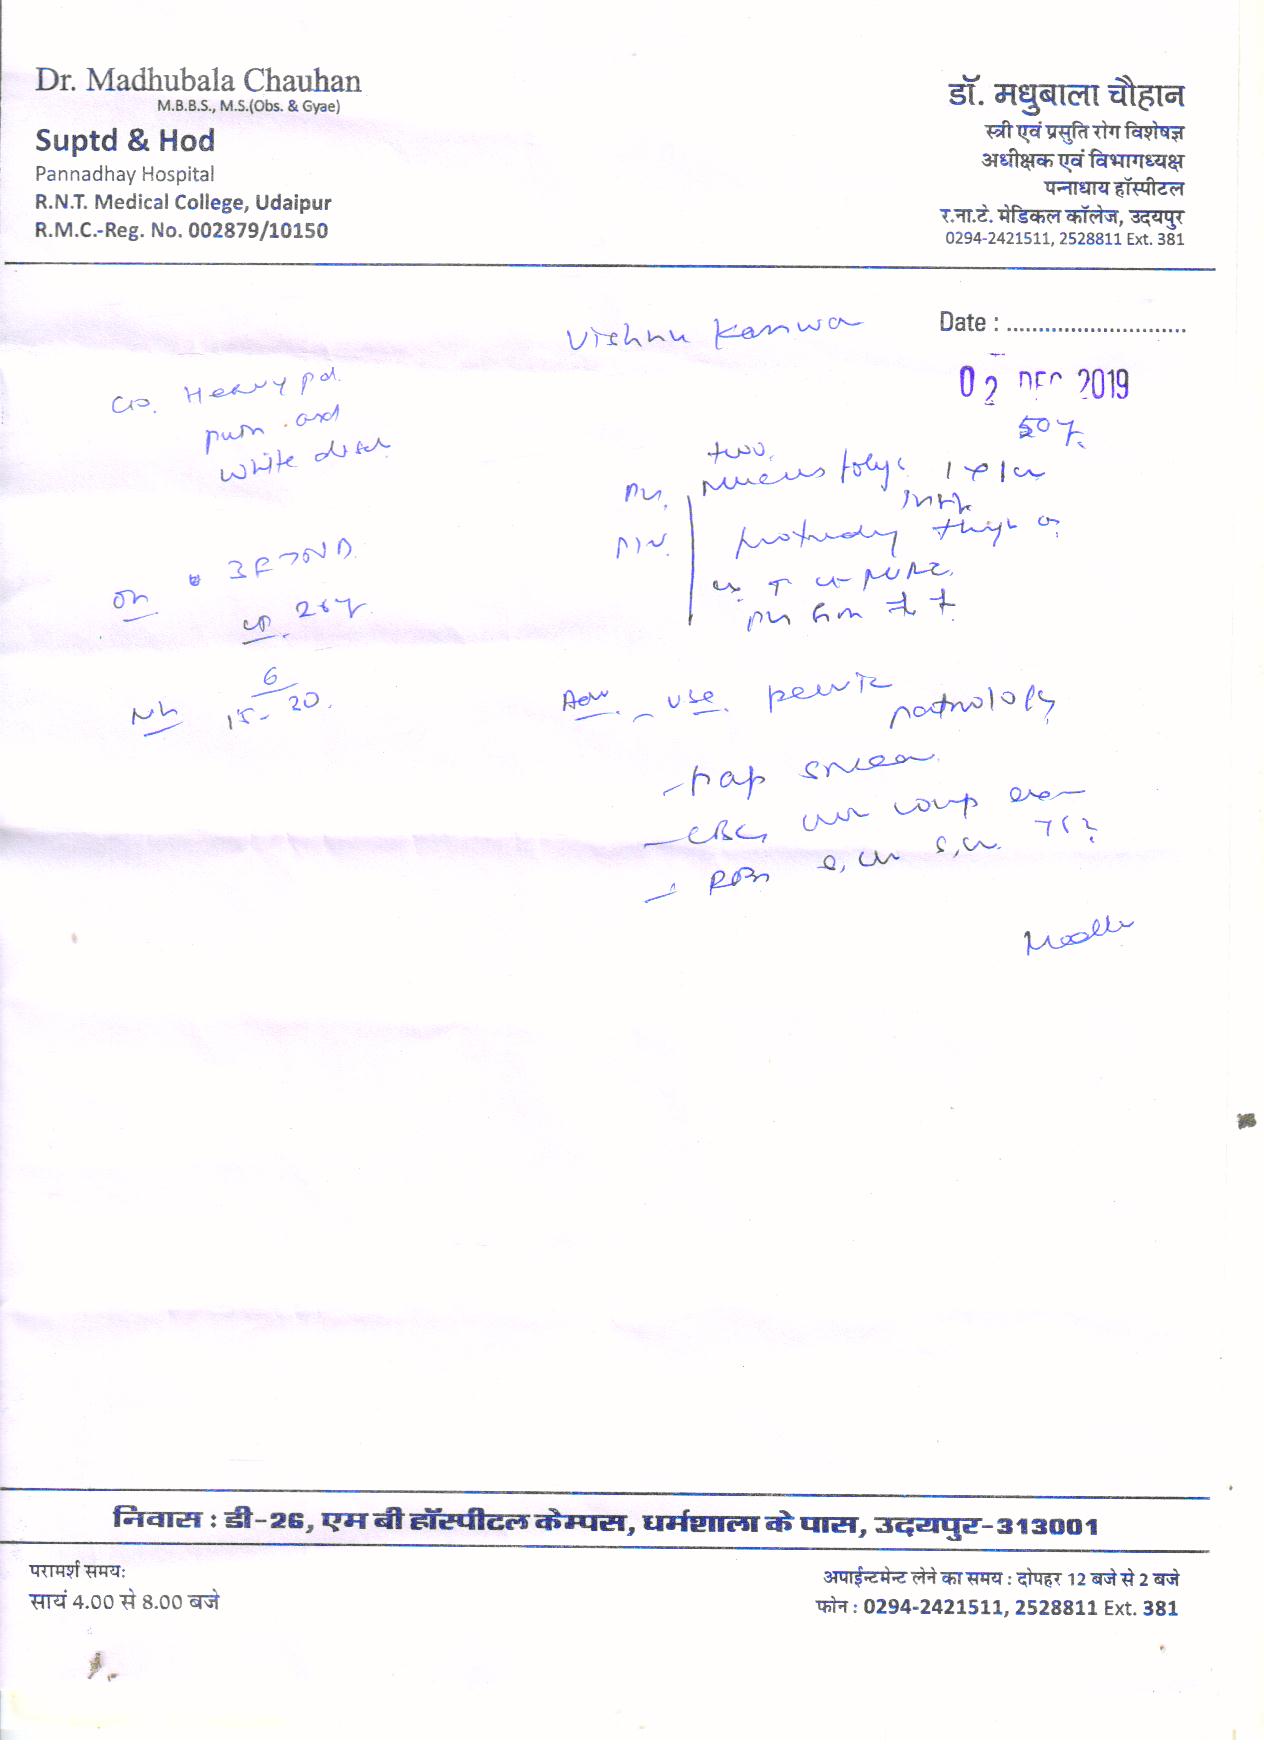 Dr. Madhubala Chauhan
M.B.B.S., M.S.(Obs. & Gyae)
Suptd & Hod
Pannadhay Hospital
R.N.T. Medical College, Udaipur
R.M.C.-Reg. No. 002879/10150
डॉ. मधुबाला चौहान
स्त्री एवं प्रसुति रोग विशेषज्ञ
अधीक्षक एवं विभागध्यक्ष
पन्नाधाय हॉस्पीटल
र.ना.टे. मेडिकल कॉलेज, उदयपुर
0294-2421511, 2528811 Ext. 381
Vishnu Kanwa
Date : ............................
02 DEC 2019
50 y.
C/o. Heavy pd.
pain and
white disch
two
mucus polyp 1x1cm
protruding
OH 3 FTND
26y
MH 6
15- 20.
Adv - USG. pelvic
pathology
- Pap smear
- CBC, comp
- RBS
निवास : डी-26, एम बी हॉस्पीटल केम्पस, धर्मशाला के पास, उदयपुर-313001
परामर्श समय:
सायं 4.00 से 8.00 बजे
अपाईन्टमेन्ट लेने का समय : दोपहर 12 बजे से 2 बजे
फोन : 0294-2421511, 2528811 Ext. 381